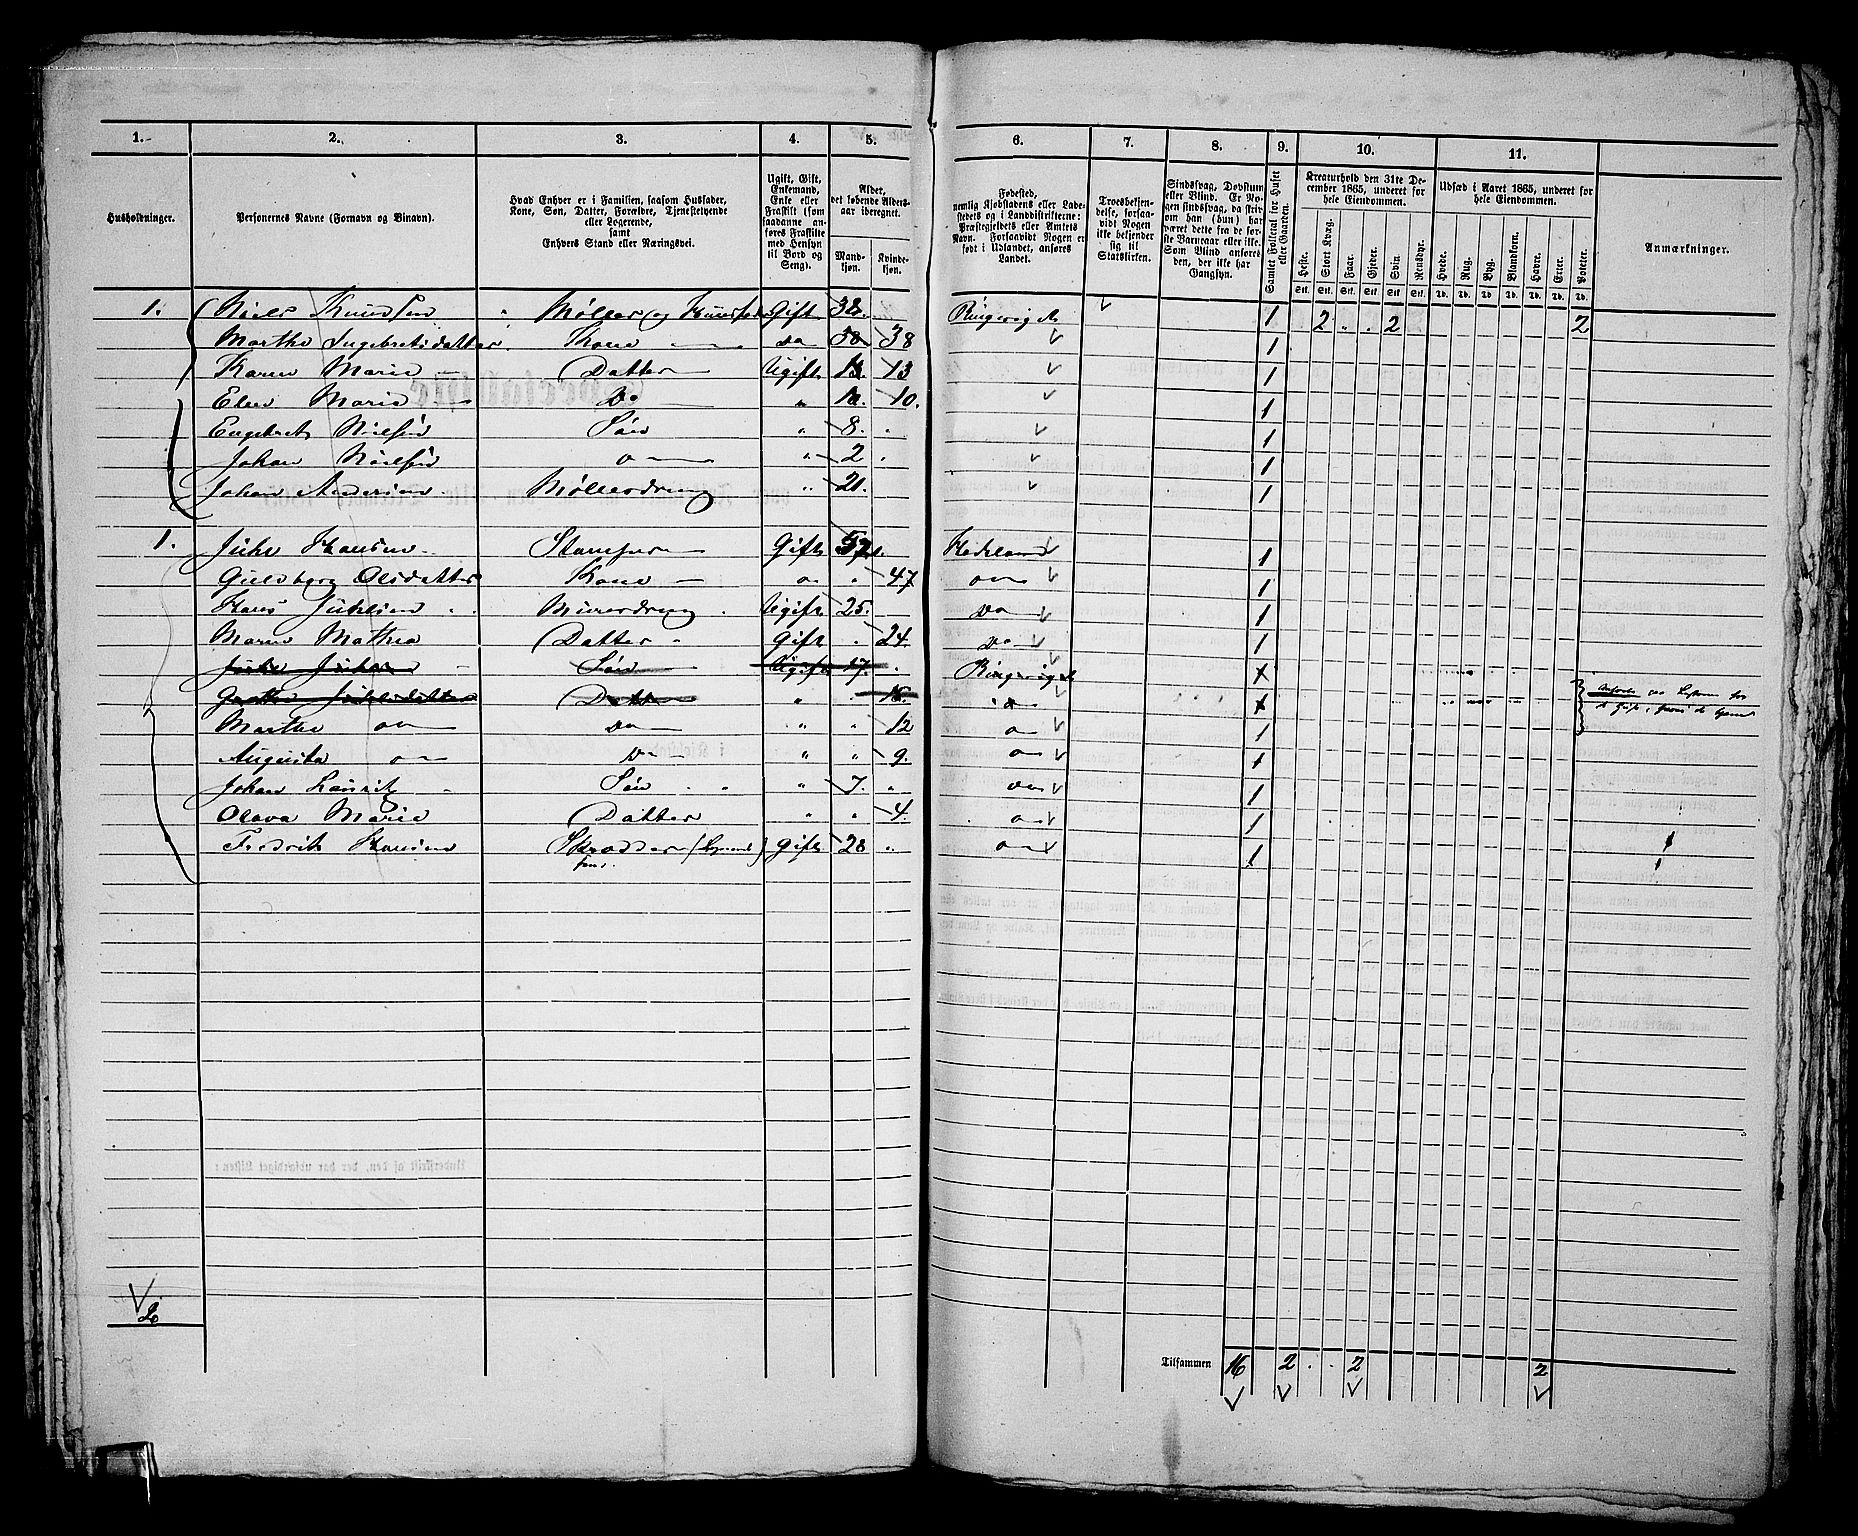 1. 2. 3. 4. 5. 6. 7. 8. 9. 10. 11.
Husholdninger.
Personernes Navne (Fornavn og Binavn).
Hvad Enhver er i Familien, saasom Husfader,
Kone, Søn, Datter, Forældre, Tjenestetyende
eller Logerende,
samt
Enhvers Stand eller Næringsvei.
Ugift, Gift,
Enkemand,
Enke eller
Fraskilt (som
saadanne anføres
Fraskilte
med Hensyn
til Bord og
Seng).
Alder,
det løbende Aldersaar
iberegnet.
Mandkjøn.
Kvindekjøn.
Fødested,
nemlig Kjøbstadens eller Ladestedets
og i Landdistrikterne:
Præstegjeldets eller Amtets
Navn. Forsaavidt Nogen er
født i Udlandet, anføres
Landet.
Troesbekjendelse,
forsaavidt
Nogen
ikke bekjender
sig til
Statskirken.
Sindssvag, Døvstum
eller Blind. Er Nogen
sindssvag, da skrives
om han (hun) har
været dette fra de første
Barneaar eller ikke.
Som Blind anføres
den, der ikke har
Gangsyn.
Samlet Folketal for Huset
eller Gaarden.
Kreaturhold den 31te December
1865, underet for
hele Eiendommen.
Heste. Stort Kvæg. Faar. Gjeder. Svin. Rensdyr.
Stk. Stk. Stk. Stk. Stk. Stk.
Udsæd i Aaret 1865, underet for
hele Eiendommen.
Hvede. Rug. Byg. Blandkorn. Havre. Erter. Poteter.
Td. Td. Td. Td. Td. Td. Td.
Anmærkninger.
1. Niels Knudsen Møller og Gift 38. 1 2 2 2
Marthe Ingebretsdatter Kone do 38 1
Karen Marie Datter Ugift 13 1
Elen Marie Do 10. 1
Engebret Nielsen Søn 8. 1
Johan Nielsen 2 1
Johan Andersen Møllerdreng 21. 1
1. Juhl Hansen Stamper Gift Hadeland 1
Guldborg Olsdatter Kone 47 1
Hans Juhlsen Murerdreng Ugift 25. Do 1
Maren Mathea Datter Gift 24. Do 1
Søn Ugift 17. x
Datter x
Marthe do 12 1
Augusta Do 9. 1
Johan Henrik Søn 7. do 1
Olava Marie Datter 4. 1
Fredrik Hansen Skrædder Gift 28 1
Tilsammen 16 2 2 2